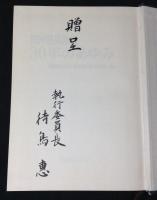 贈呈
執行委員長
待鳥 恵